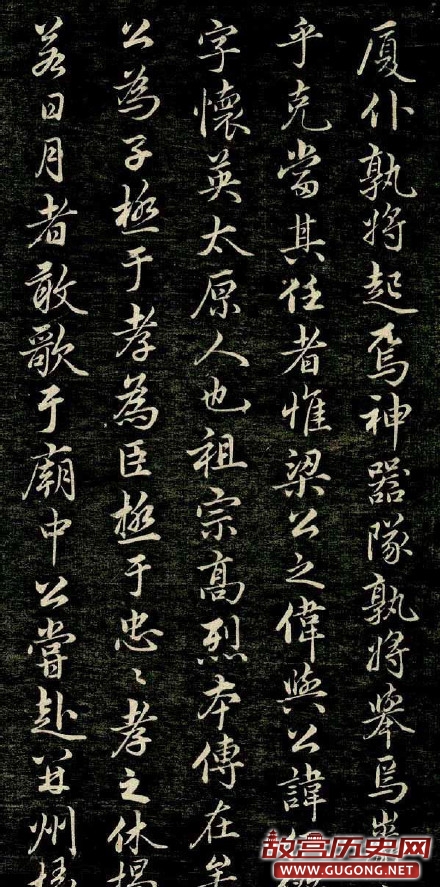 厦仆孰將起焉神器隊孰將舉焉
乎克當其任者惟梁公之偉與公諱
字懷英太原人也祖宗髙烈本傳在
公為子極于孝為臣極于忠〻孝之休揭
若日月者敢歌于廟中公嘗赴并州掾
故宫历史网
WWW.GUGONG.NET